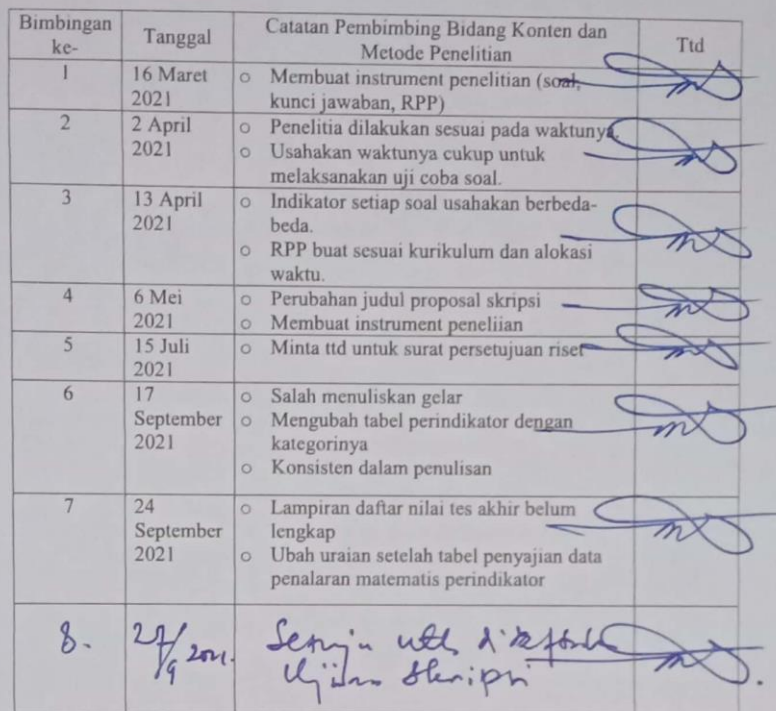 Bimbingan ke-
Tanggal
Catatan Pembimbing Bidang Konten dan
Metode Penelitian
Ttd
1
16 Maret
2021
o Membuat instrument penelitian (soal,
kunci jawaban, RPP)
2
2 April
2021
o Penelitia dilakukan sesuai pada waktunya.
o Usahakan waktunya cukup untuk
melaksanakan uji coba soal.
3
13 April
2021
o Indikator setiap soal usahakan berbeda-
beda.
o RPP buat sesuai kurikulum dan alokasi
waktu.
4
6 Mei
2021
o Perubahan judul proposal skripsi
o Membuat instrument peneliian
5
15 Juli
2021
o Minta ttd untuk surat persetujuan riset
6
17
September
2021
o Salah menuliskan gelar
o Mengubah tabel perindikator dengan
kategorinya
o Konsisten dalam penulisan
7
24
September
2021
o Lampiran daftar nilai tes akhir belum
lengkap
o Ubah uraian setelah tabel penyajian data
penalaran matematis perindikator
8.
27/9 2021.
Setuju utk
Ujian Skripsi